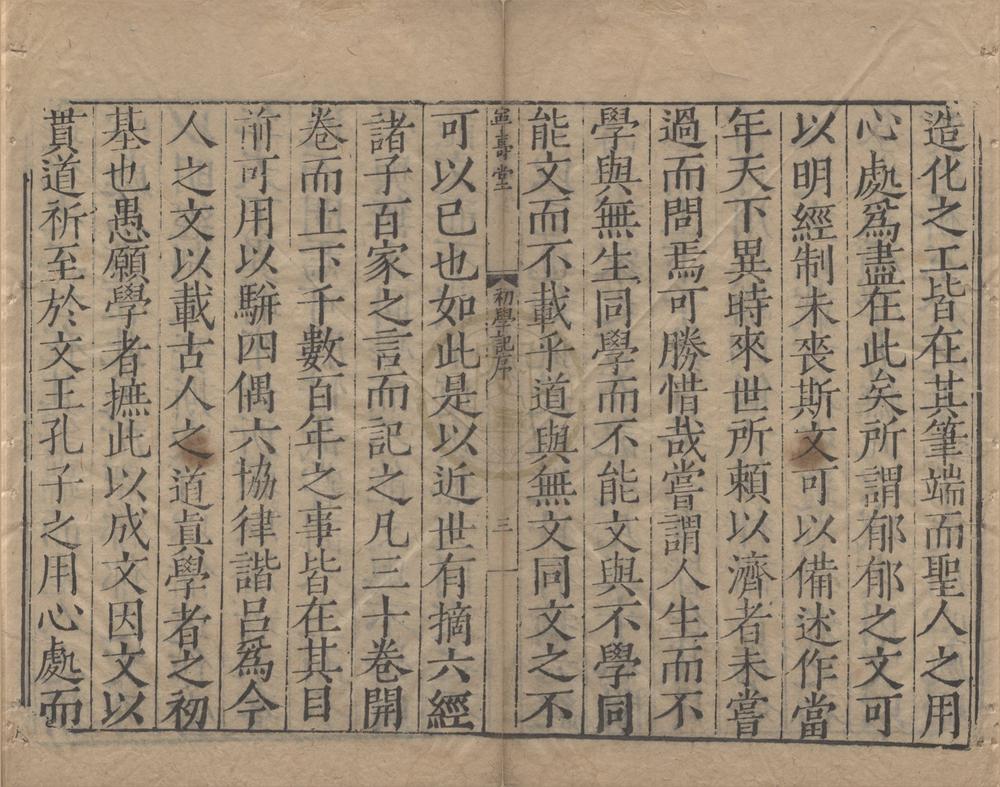 造化之工皆在其筆端而聖人之用
心處爲盡在此矣所謂郁郁之文可
以明經制未丧斯文可以備述作當
年天下異時來世所頼以濟者未嘗
過而問焉可勝惜哉嘗謂人生而不
學與無生同學而不能文與不學同
能文而不載乎道與無文同文之不
寧壽堂
初學記序
三
可以已也如此是以近世有摘六經
諸子百家之言而記之凡三十卷開
卷而上下千數百年之事皆在其目
前可用以駢四偶六協律諧吕爲今
人之文以載古人之道真學者之初
基也愚願學者摭此以成文因文以
貫道祈至於文王孔子之用心處而